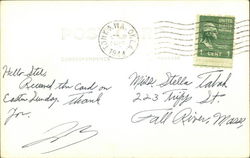 POST CARD
CORRESPONDENCE
1944
1 CENT 1
Hello Stell
Received the Card on
Easter Sunday. Thank
You.
Miss. Stella Tabak
223 Tripp St.
Fall River, Mass